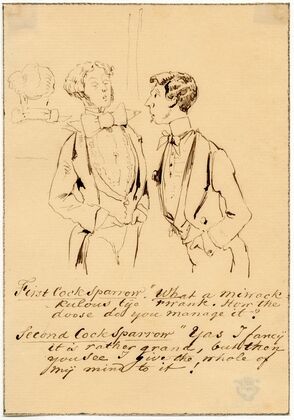 First Cock Sparrow "What a miwack
kulous tye Fwank. How the
doose do you manage it?
Second Cock Sparrow "Yas I fancy
it is rather grand, but then
you see I give the whole of
my mind to it!